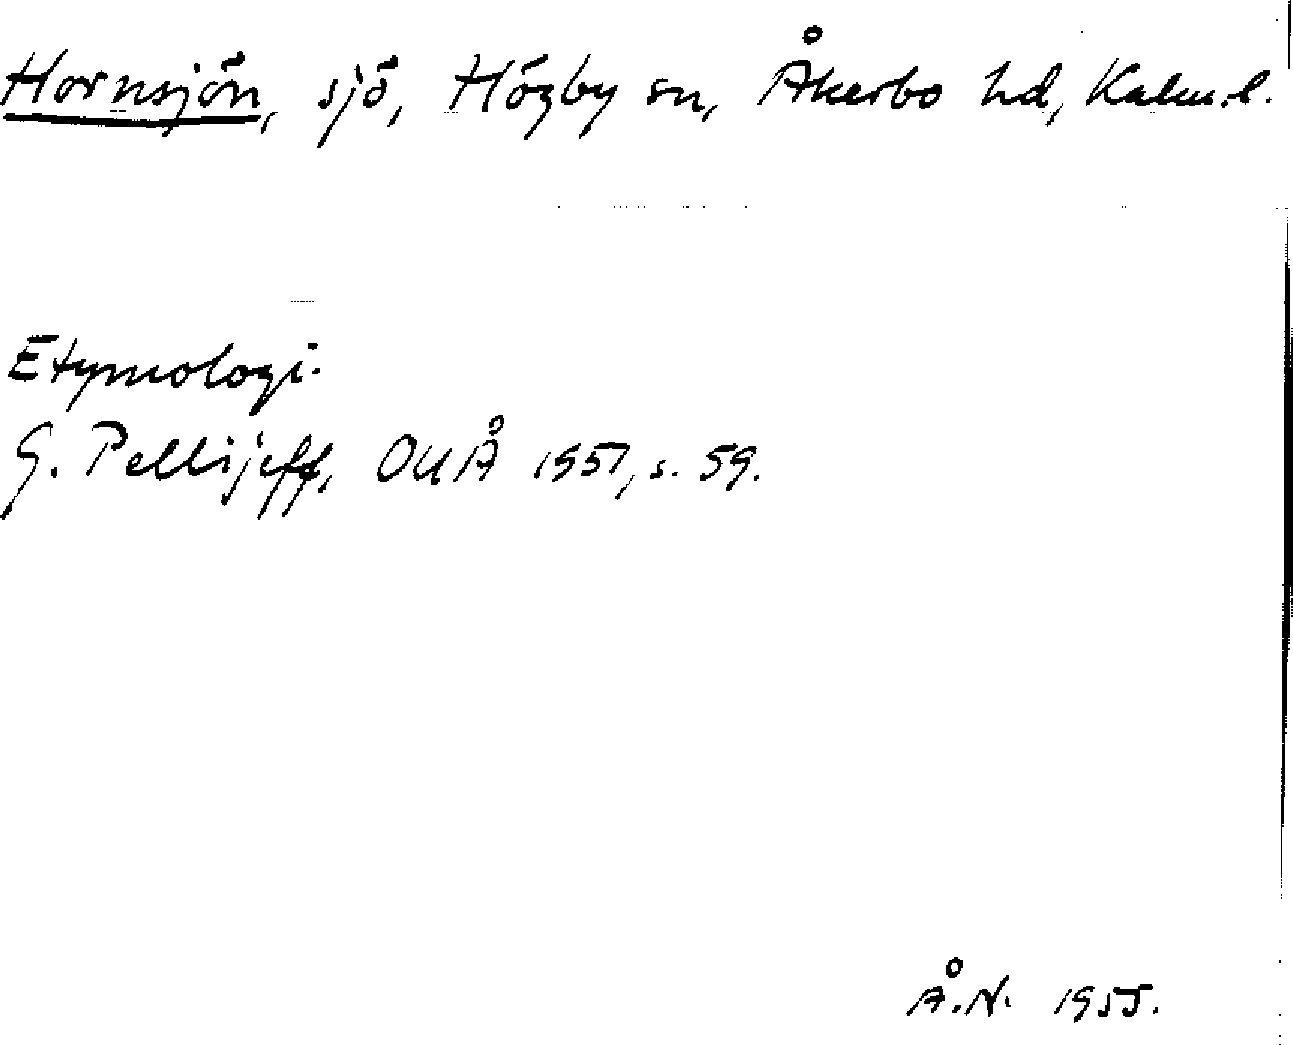 Hornsjön, sjö, Högby sn, Åkerbo hd, Kalm.l.
Etymologi.
G. Pellijeff, OUÅ 1951, s. 59.
Å.N. 1955.